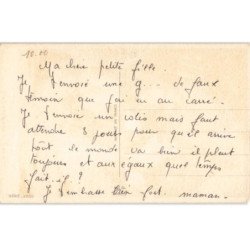 10.00
Ma chère petite fille.
Je t'envoie une g... de faux
témoin que j'ai eu au carré.
Je t'envoie un colis mais faut
attendre 8 jours pour qu'il arrive
tout le monde va bien il pleut
toujours et aux egaux quel temps
fait-il ?
Je t'embrasse bien fort. maman.